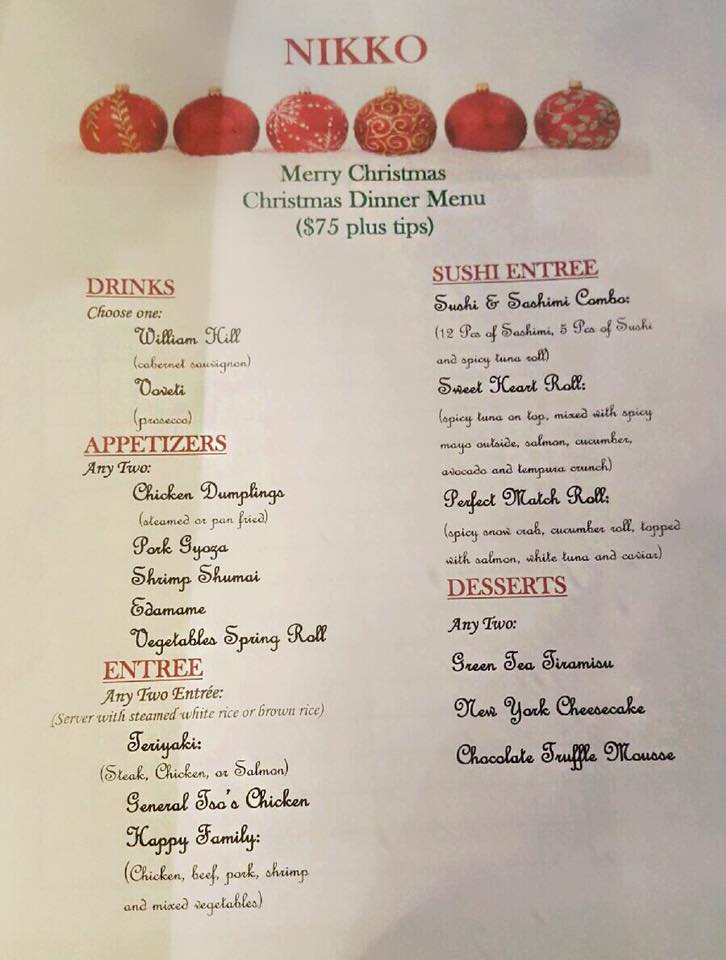 NIKKO
Merry Christmas
Christmas Dinner Menu
($75 plus tips)
DRINKS
Choose one:
William Hill
(cabernet sauvignon)
Voveti
(prosecco)
APPETIZERS
Any Two:
Chicken Dumplings
(steamed or pan fried)
Pork Gyoza
Shrimp Shumai
Edamame
Vegetables Spring Roll
ENTREE
Any Two Entrée:
(Server with steamed white rice or brown rice)
Teriyaki:
(Steak, Chicken, or Salmon)
General Tso's Chicken
Happy Family:
(Chicken, beef, pork, shrimp
and mixed vegetables)
SUSHI ENTREE
Sushi & Sashimi Combo:
(12 Pcs of Sashimi, 5 Pcs of Sushi
and spicy tuna roll)
Sweet Heart Roll:
(spicy tuna on top, mixed with spicy
mayo outside, salmon, cucumber,
avocado and tempura crunch)
Perfect Match Roll:
(spicy snow crab, cucumber roll, topped
with salmon, white tuna and caviar)
DESSERTS
Any Two:
Green Tea Tiramisu
New York Cheesecake
Chocolate Truffle Mousse